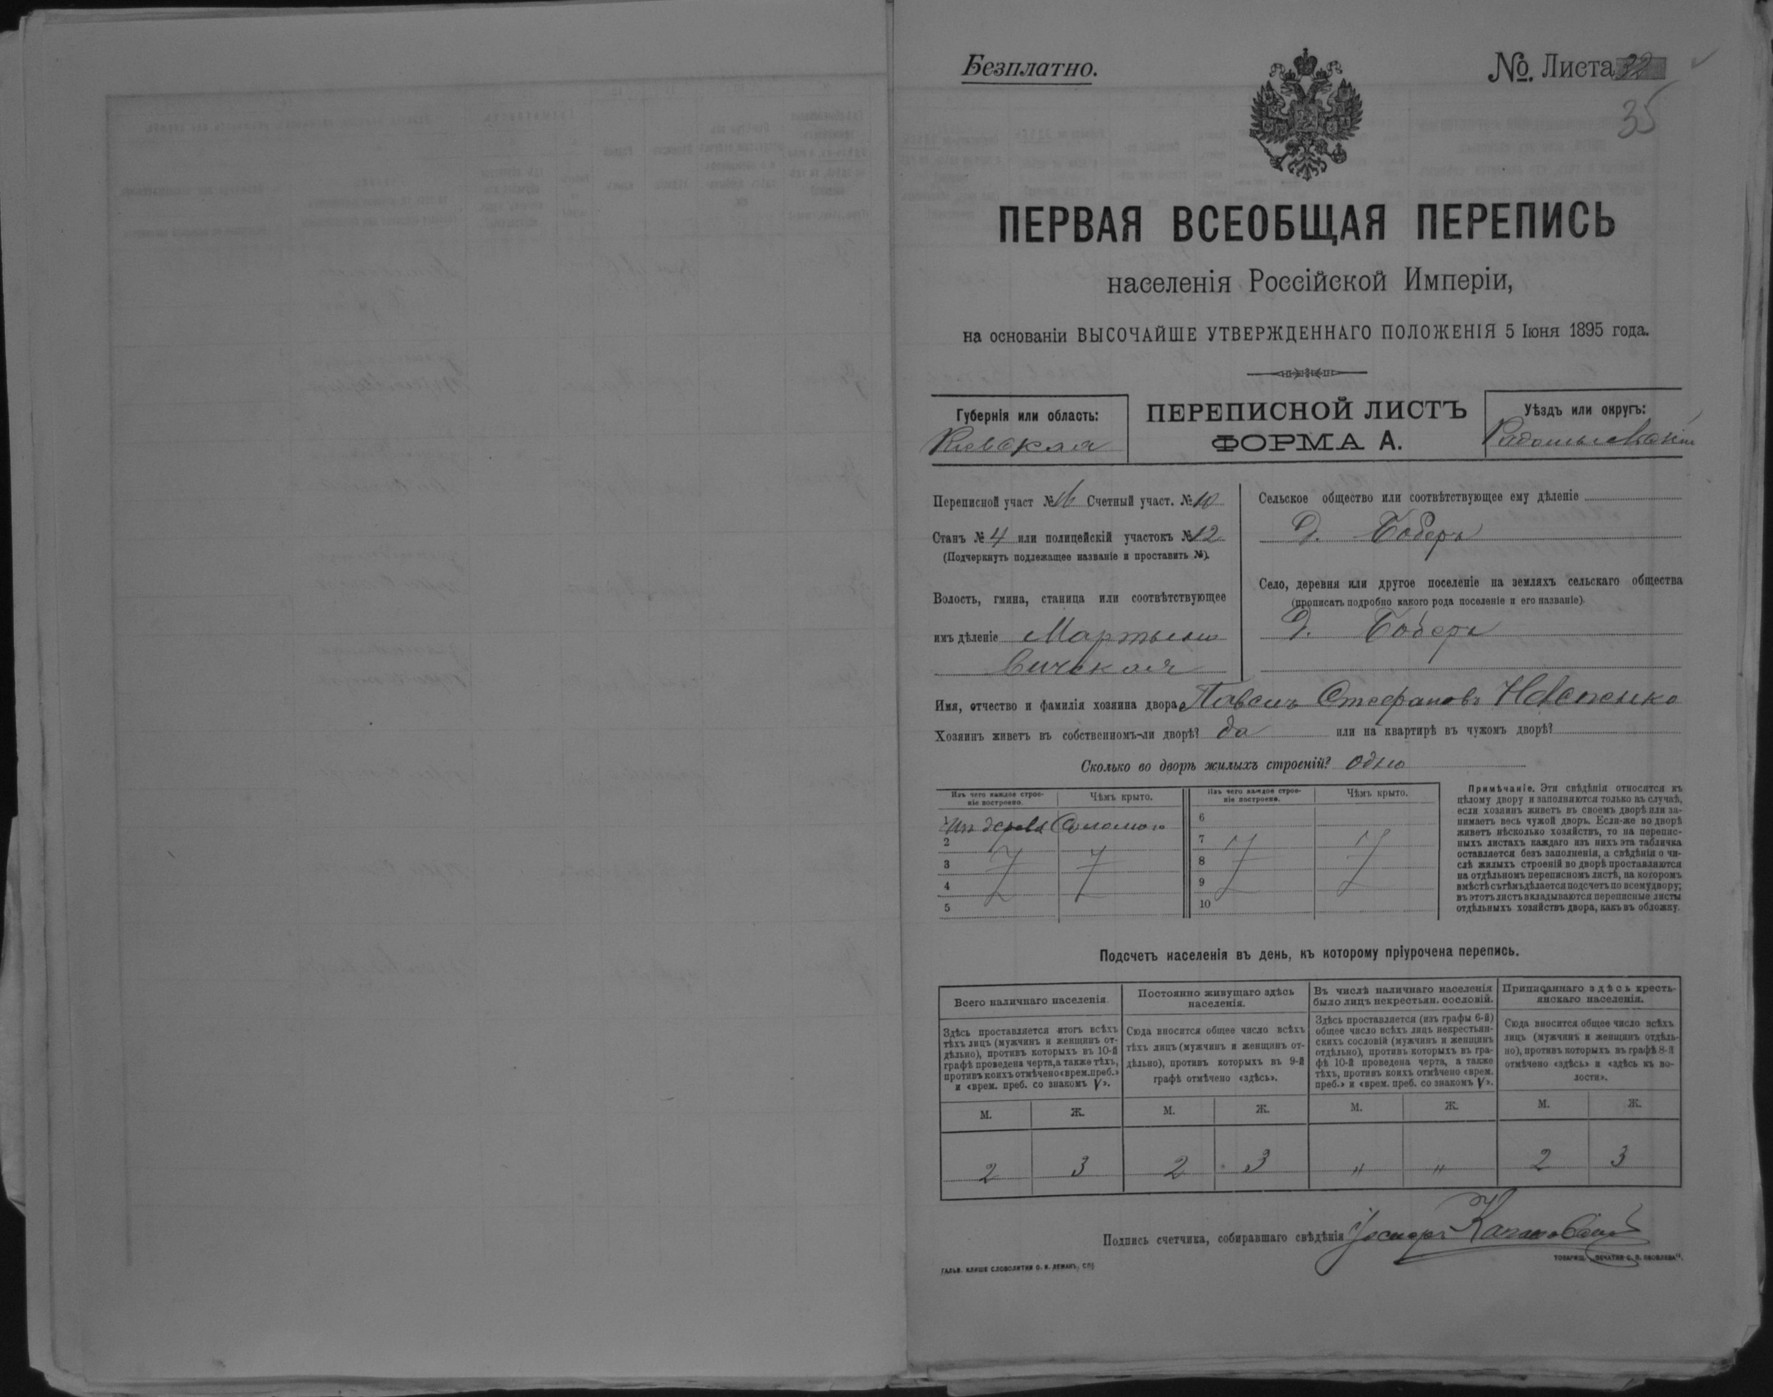 Безплатно.
№ Листа 32
35
ПЕРВАЯ ВСЕОБЩАЯ ПЕРЕПИСЬ
населенія Россійской Имперіи,
на основаніи ВЫСОЧАЙШЕ УТВЕРЖДЕННАГО ПОЛОЖЕНІЯ 5 Іюня 1895 года.
Губернія или область:
Кіевская
ПЕРЕПИСНОЙ ЛИСТЪ
ФОРМА А.
Уѣздъ или округъ:
Радомысльскій
Переписной участ № Счетный участ. № 10
Станъ № 4 или полицейскій участокъ № 12
(Подчеркнуть подлежащее названіе и проставить №).
Волость, гмина, станица или соотвѣтствующее
имъ дѣленіе Мартыно
вичская
Сельское общество или соотвѣтствующее ему дѣленіе
д. Боберъ
Село, деревня или другое поселеніе на земляхъ сельскаго общества
(прописать подробно какого рода поселеніе и его названіе).
д. Боберъ
Имя, отчество и фамилія хозяина двора Павелъ Стефановъ
Хозяинъ живетъ въ собственномъ-ли дворѣ? да или на квартирѣ въ чужомъ дворѣ?
Сколько во дворѣ жилыхъ строеній? одно
Изъ чего каждое строе-
ніе построено.
Чѣмъ крыто.
Изъ чего каждое строе-
ніе построено.
Чѣмъ крыто.
1 Изъ дерева Соломою
2
3
4
5
6
7
8
9
10
Примѣчаніе. Эти свѣдѣнія относятся къ
цѣлому двору и заполняются только въ случаѣ,
если хозяинъ живетъ въ своемъ дворѣ или за-
нимаетъ весь чужой дворъ. Если-же во дворѣ
живетъ нѣсколько хозяйствъ, то на перепис-
ныхъ листахъ каждаго изъ нихъ эта табличка
оставляется безъ заполненія, а свѣдѣнія о чи-
слѣ жилыхъ строеній во дворѣ проставляются
на отдѣльномъ переписномъ листѣ, на которомъ
вмѣстѣ съ тѣмъ дѣлается подсчетъ по всему двору;
въ этотъ листъ вкладываются переписные листы
отдѣльныхъ хозяйствъ двора, какъ въ обложку.
Подсчетъ населенія въ день, къ которому пріурочена перепись.
Всего наличнаго населенія.
Здѣсь проставляется итогъ всѣхъ
тѣхъ лицъ (мужчинъ и женщинъ от-
дѣльно), противъ которыхъ въ 10-й
графѣ проведена черта, а также тѣхъ,
противъ коихъ отмѣчено «врем. преб.»
и «врем. преб. со знакомъ V».
Постоянно живущаго здѣсь
населенія.
Сюда вносится общее число всѣхъ
тѣхъ лицъ (мужчинъ и женщинъ от-
дѣльно), противъ которыхъ въ 9-й
графѣ отмѣчено «здѣсь».
Въ числѣ наличнаго населенія
было лицъ некрестьян. сословій.
Здѣсь проставляется (изъ графы 6-й)
общее число всѣхъ лицъ некрестьян-
скихъ сословій (мужчинъ и женщинъ
отдѣльно), противъ которыхъ въ гра-
фѣ 10-й проведена черта, а также
тѣхъ, противъ коихъ отмѣчено «врем.
преб.» и «врем. преб. со знакомъ V».
Приписаннаго здѣсь кресть-
янскаго населенія.
Сюда вносится общее число всѣхъ
лицъ (мужчинъ и женщинъ отдѣль-
но), противъ которыхъ въ графѣ 8-й
отмѣчено «здѣсь» и «здѣсь въ во-
лости».
М. Ж. М. Ж. М. Ж. М. Ж.
2 3 2 3 " " 2 3
Подпись счетчика, собиравшаго свѣдѣнія
ГАЛЬВ. КЛИШЕ СЛОВОЛИТНИ О. И. ЛЕМАНЪ, СПБ
ТОВАРИЩ. ПЕЧАТНИ С. П. ЯКОВЛЕВА.